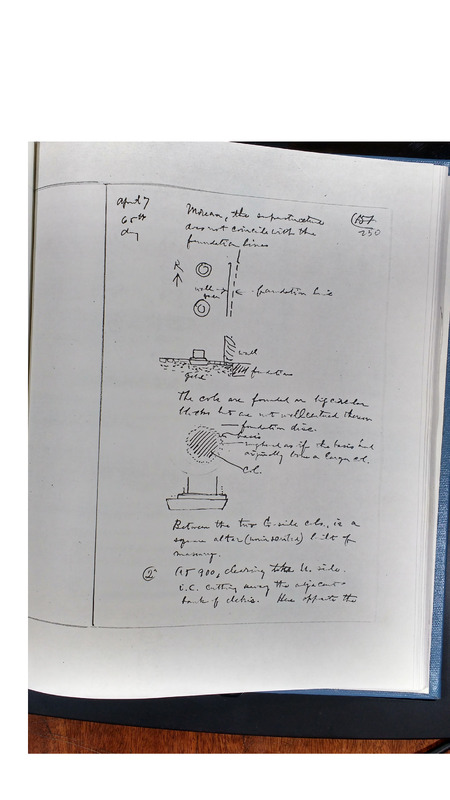 April 7
65th
day
157
230
Moreover, the superstructure
does not coincide with the
foundation lines
wall
foundation line
wall
foundation
gebel
The cols are founded on big circular
blocks but are not well centred thereon
foundation disc.
basis
as if the basis had
originally borne a larger col.
Col.
Between the two E-side cols. is a
square altar (uninscribed) built of
masonry.
(2) At 900, clearing to the W. side.
i.e. cutting away the adjacent
bank of debris. Here opposite the